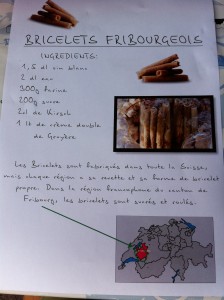 BRICELETS FRIBOURGEOIS
INGREDIENTS:
1,5 dl vin blanc
2 dl eau
300g farine
200g sucre
2cl de Kirsch
1 lt de crème double
de Gruyère
Les Bricelets sont fabriqués dans toute la Suisse,
mais chaque région a sa recette et sa forme de bricelet
propre. Dans la région francophone du canton de
Fribourg, les bricelets sont sucrés et roulés.